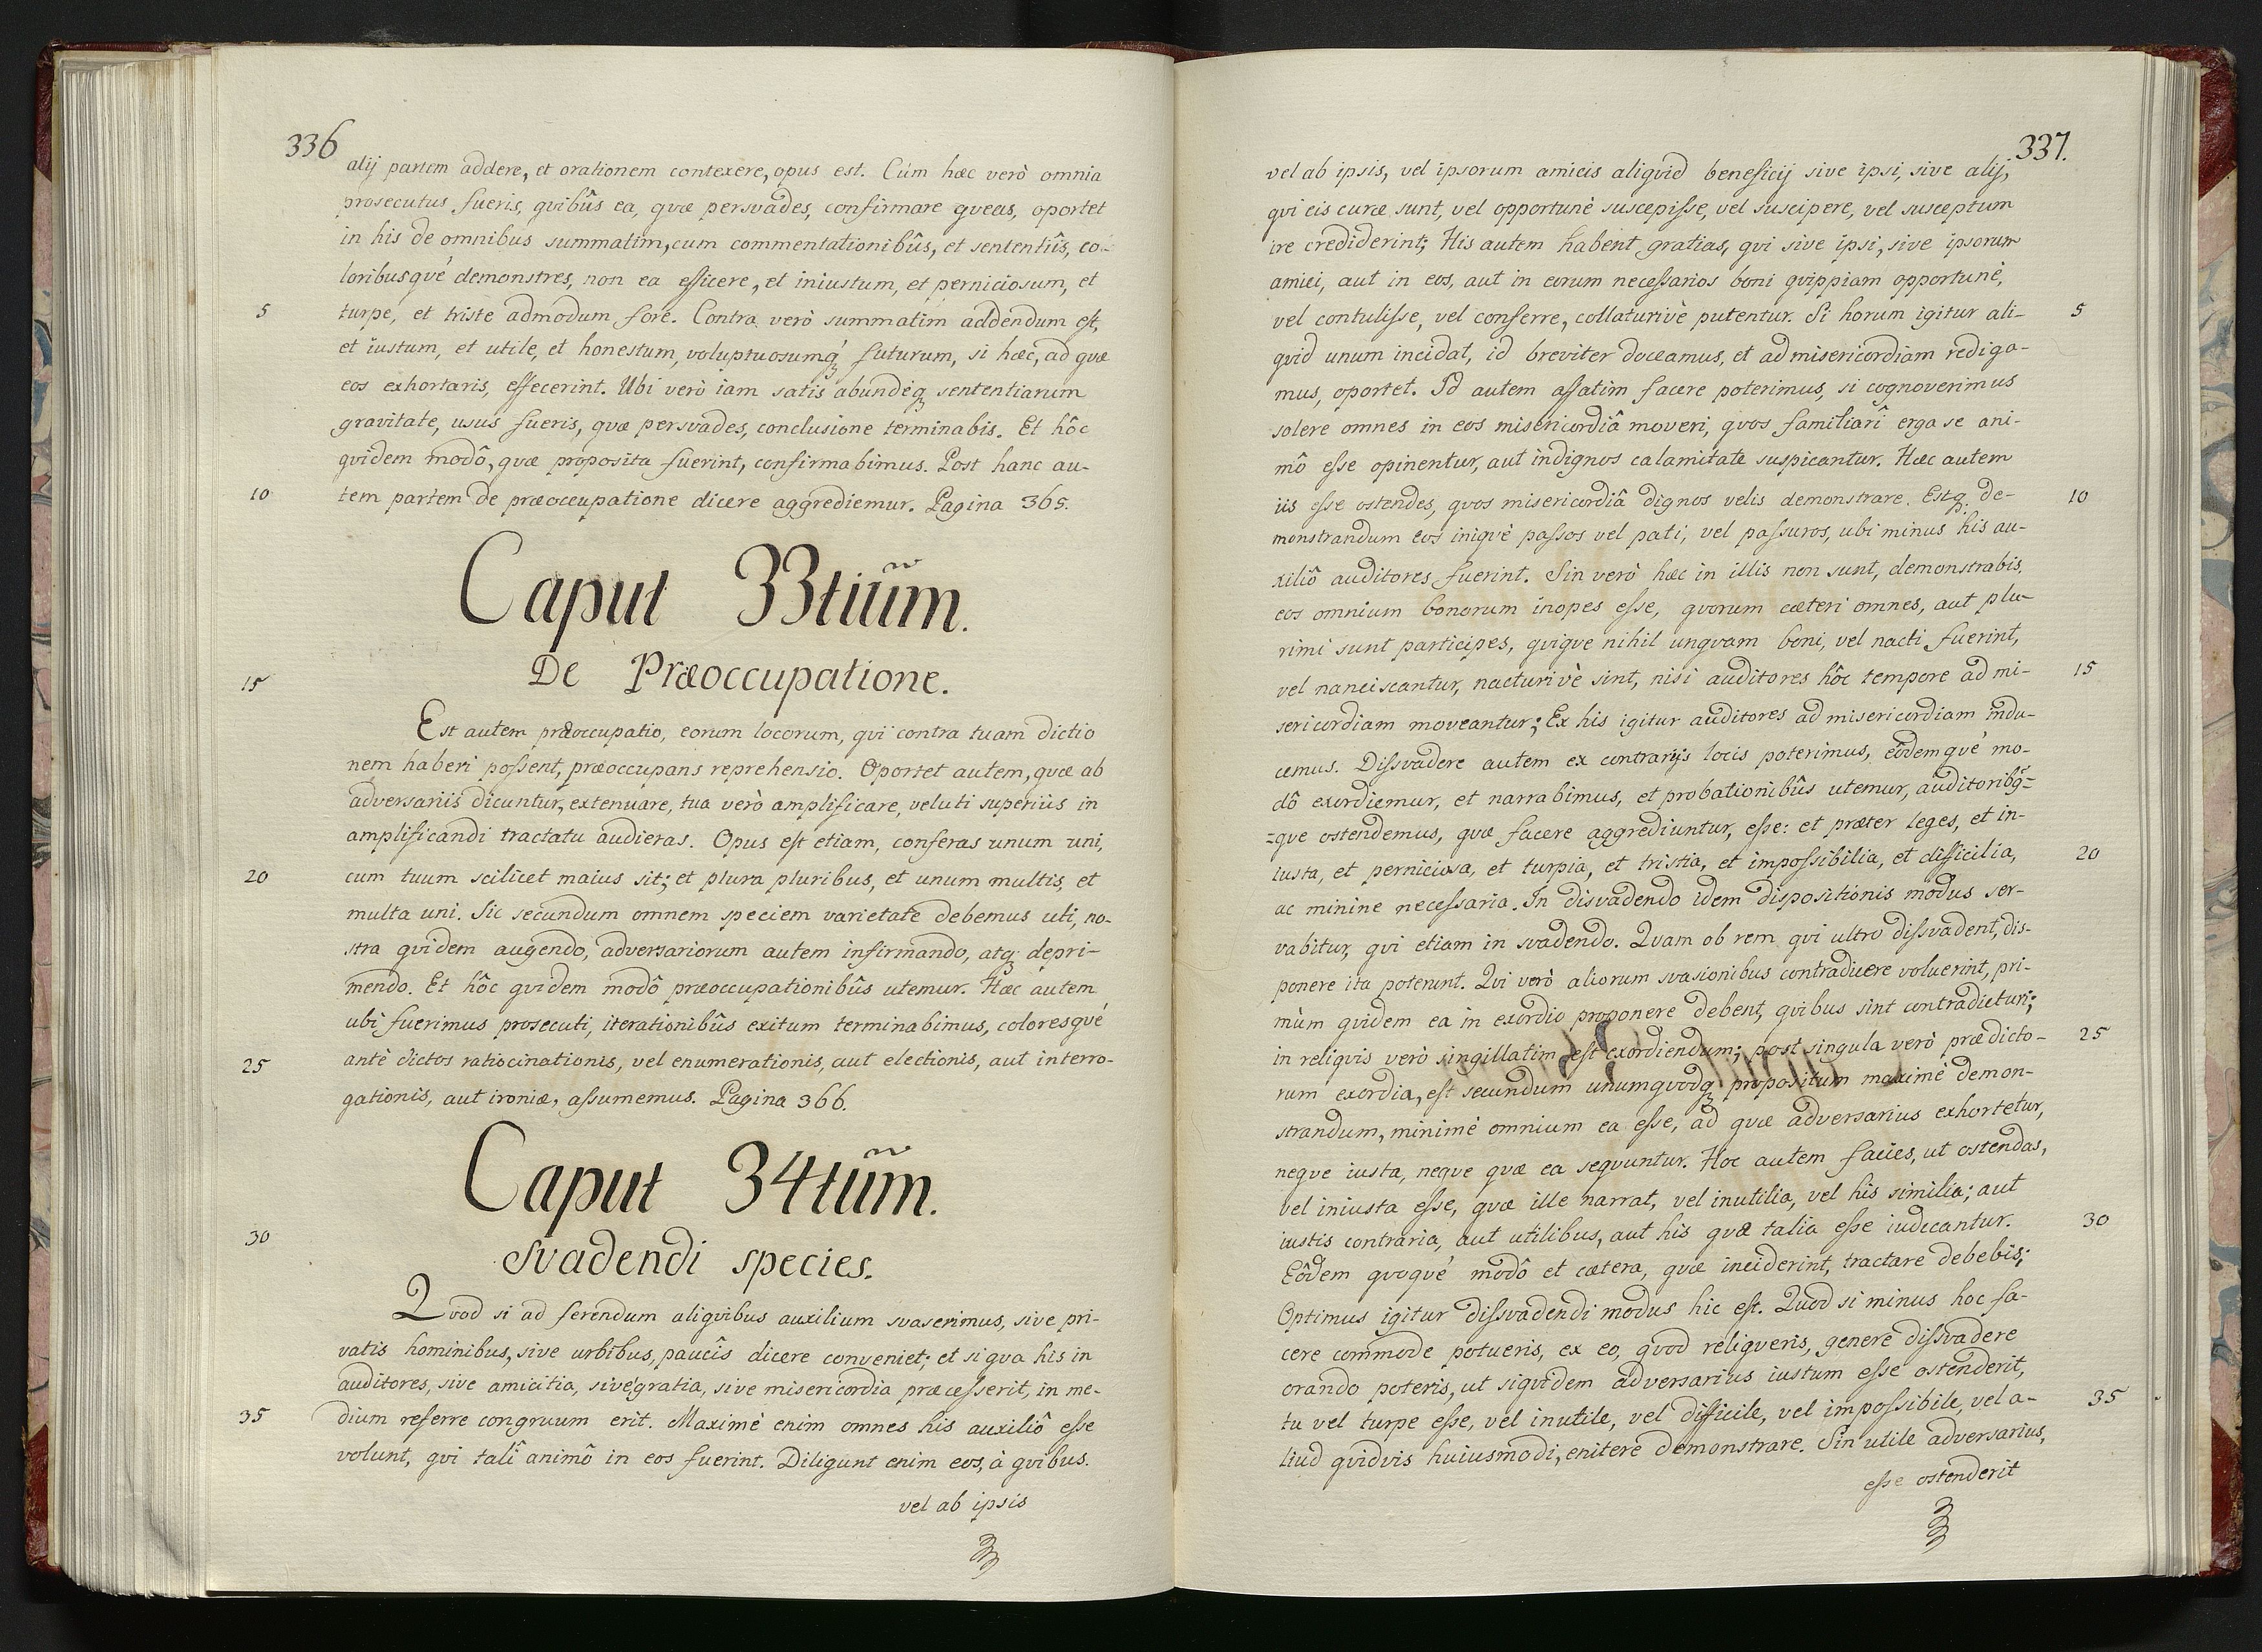 336
alij partem addere, et orationem contexere, opus est. Cúm hæc verò omnia
prosecutus fueris, qvibûs ea, qvæ persvades, confirmare qveas, oportet
in his de omnibus summatim, cum commentationibûs, et sententiîs, co-
loribusqvé demonstres, non ea efficere, et iniustum, et perniciosum, et
5 turpe, et triste admodum fore. Contra verò summatim addendum est,
et iustum, et utile, et honestum, voluptuosumq́ꝫ futurum, si hæc, ad qvæ
eos exhortaris, effecerint. Ubi verò iam satis abundéqꝫ sententiarum
gravitate, usus fueris, qvæ persvades, conclusione terminabis. Et hôc
qvidem modô, qvæ proposita fuerint, confirmabimus. Post hanc au-
10 tem partem de præoccupatione dicere aggrediemur. Pagina 365.
Caput 33tium̃.
De Præoccupatione.
15
Est autem præoccupatio, eorum locorum, qvi contra tuam dictio
nem haberi possent, præoccupans reprehensio. Oportet autem, qvæ ab
adversariis dicuntur, extenuare, tua verò amplificare, veluti superiùs in
amplificandi tractatu audieras. Opus est etiam, conferas unum uni,
20 cum tuum scilicet maius sit; et plura pluribus, et unum multis, et
multa uni. Sic secundum omnem speciem varietate debemus uti, no-
stra qvidem augendo, adversariorum autem infirmando, atqꝫ depri-
mendo. Et hôc qvidem modô præoccupationibûs utemur. Hæc autem
ubi fuerimus prosecuti, iterationibûs exitum terminabimus, coloresqvé
25 antè dictos ratiocinationis, vel enumerationis, aut electionis, aut interro-
gationis, aut ironiæ, assumemus. Pagina 366.
Caput 34tum̃.
30
Svadendi species.
Qvod si ad ferendum aliqvibus auxilium svaserimus, sive pri-
vatis hominibus, sive urbibus, paucîs dicere conveniet; et si qva his in
auditores, sive amicitia, sivè gratia, sive misericordia præcesserit, in me-
35 dium referre congruum erit. Maximè enim omnes his auxiliô esse
volunt, qvi talî animô in eos fuerint. Diligunt enim eos, à qvibus.
vel ab ipsis
337.
vel ab ipsis, vel ipsorum amicis aliqvid beneficij sive ipsi, sive alij,
qvi eis curæ sunt, vel opportunè suscepisse, vel suscipere, vel susceptum
ire crediderint; His autem habent gratias, qvi sive ipsi, sive ipsorum
amici, aut in eos, aut in eorum necessarios boni qvippiam opportunè,
5 vel contulisse, vel conferre, collaturivè putentur. Si horum igitur ali-
qvid unum incidat, id breviter doceamus, et ad misericordiam rediga-
mus, oportet. Id autem affatìm facere poterimus, si cognoverimus
solere omnes in eos misericordiâ moveri, qvos familiarî erga se ani-
mô esse opinentur, aut indignos calamitate suspicantur. Hæc autem
10 iis esse ostendes, qvos misericordiâ dignos velis demonstrare. Estqꝫ de-
monstrandum eos iniqvè passos vel pati, vel passuros, ubi minus his au-
xiliô auditores fuerint. Sin verò hæc in illis non sunt, demonstrabis,
eos omnium bonorum inopes esse, qvorum cæteri omnes, aut plu-
rimi sunt participes, qviqve nihil unqvam boni, vel nacti fuerint,
15 vel nanciscantur, nacturivè sint, nisi auditores hôc tempore ad mi-
sericordiam moveantur; Ex his igitur auditores ad misericordiam indu-
cemus. Dissvadere autem ex contrarijs locis poterimus, eôdemqvé mo-
dô exordiemur, et narrabimus, et probationibûs utemur, auditoribq̃=
=qve ostendemus, qvæ facere aggrediuntur, esse: et præter leges, et in-
20 iusta, et perniciosa, et turpia, et tristia, et impossibilia, et difficilia,
ac minine necessaria. In disvadendo idem dispositionis modus ser-
vabitur, qvi etiam in svadendo. Qvam ob rem qvi ultro dissvadent, dis-
ponere ita poterunt. Qvi verò aliorum svasionibus contradicere voluerint, pri-
mùm qvidem ea in exordio proponere debent, qvibus sint contradicturi;
25 in reliqvis verò singillatim est exordiendum; post singula verò prædicto-
rum exordia, est secundum unumqvodqꝫ propositum maximè demon-
strandum, minimè omnium ea esse, ad qvæ adversarius exhortetur,
neqve iusta, neqve qvæ ea seqvuntur. Hoc autem facies, ut ostendas,
vel iniusta esse, qvæ ille narrat, vel inutilia, vel his similia; aut
30 iustis contraria, aut utilibus, aut his qvæ talia esse iudicantur.
Eôdem qvoqvé modô et cætera, qvæ inciderint, tractare debebis;
Optimus igitur dissvadendi modus hic est. Quod si minus hoc fa-
cere commode potueris, ex eo, qvod reliqveris, genere dissvadere
orando poteris, ut siqvidem adversarius iustum esse ostenderit,
35 tu vel turpe esse, vel inutile, vel difficile, vel impossibile, vel a-
liud qvidvis huiusmodi, enitere demonstrare. Sin utile adversarius,
esse ostenderit